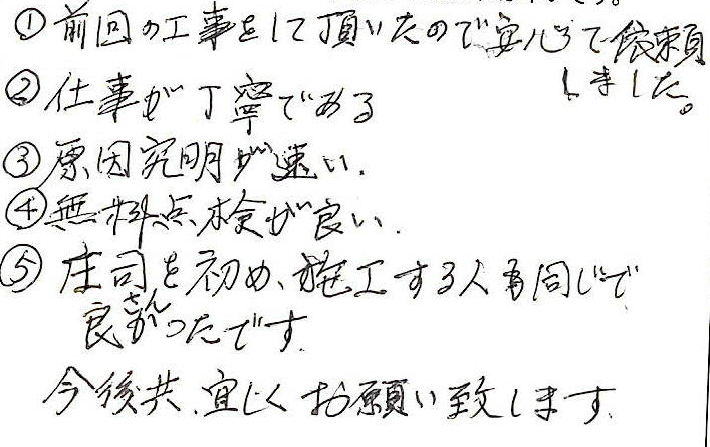 ①前回の工事をして頂いたので安心して依頼
しました。
②仕事が丁寧である
③原因究明が速い.
④無料点検が良い.
⑤庄司さんを初め、施工する人も同じで
良かったです.
今後共、宜しくお願い致します.